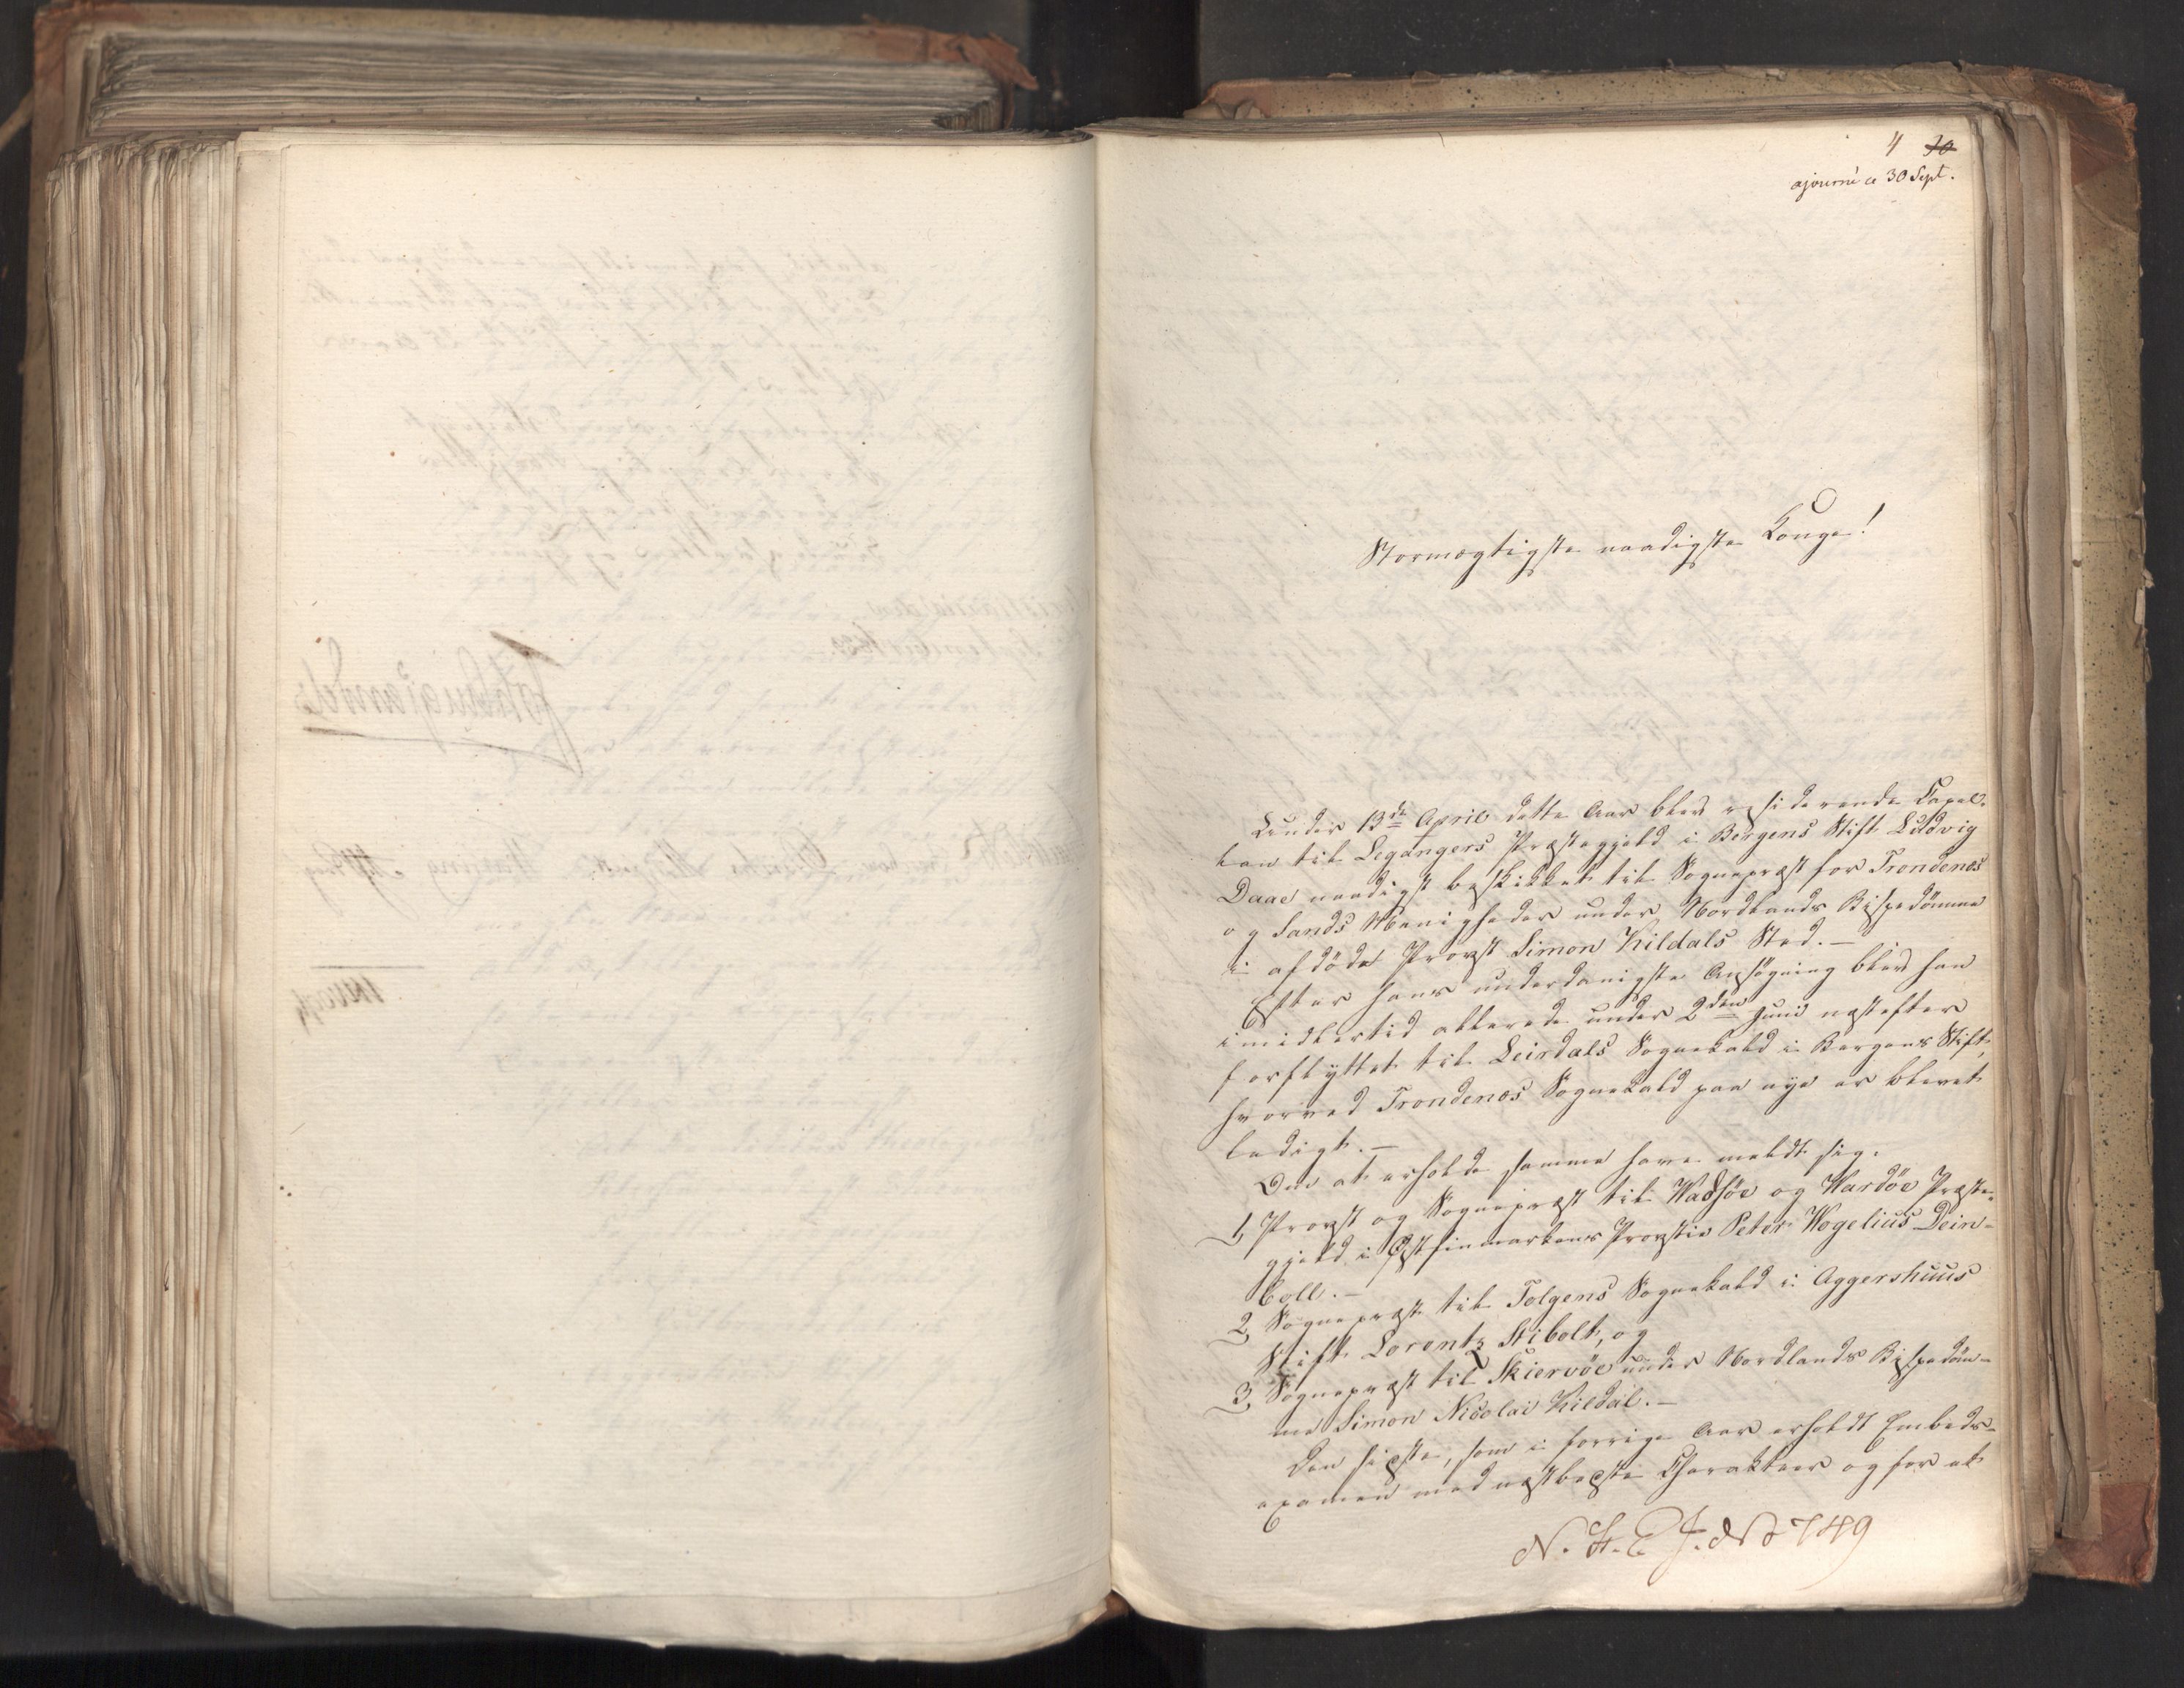 4 30
ajourné ce 30 Sept.
Stormægtigste naadigste Konge!
Under 13de April dette Aar blev residerende Capel-
lan til Legangers Præstegjeld i Bergens Stift Ludvig
Daae naadigst beskikket til Sognepræst for Trondenæs
og Sands Menigheder under Nordlands Bispedömme
i afdöde Provst Simon Kildals Sted.—
Efter hans underdanigste Ansögning blev han
imidlertid allerede under 2den Juni næstefter
forflyttet til Leirdals Sognekald i Bergens Stift,
hvorved Trondenæs Sognekald paa nye er blevet
ledigt.—
Om at erholde samme have meldt sig.
1, Provst og Sognepræst til Wadsöe og Wardöe Præste-
gjeld i Østfinmarkens Provstie Peter Wogelius Dein-
boll.—
2, Sognepræst til Tolgens Sognekald i Aggershuus
Stift Lorentz Stibolt, og
3, Sognepræst til Skiervöe under Nordlands Bispedöm-
me Simon Nicolai Kildal.—
Den sidste, som i forrige Aar erholdt Embeds-
examen med næstbedste Charakteer og for at
N. K. E. J. No 749